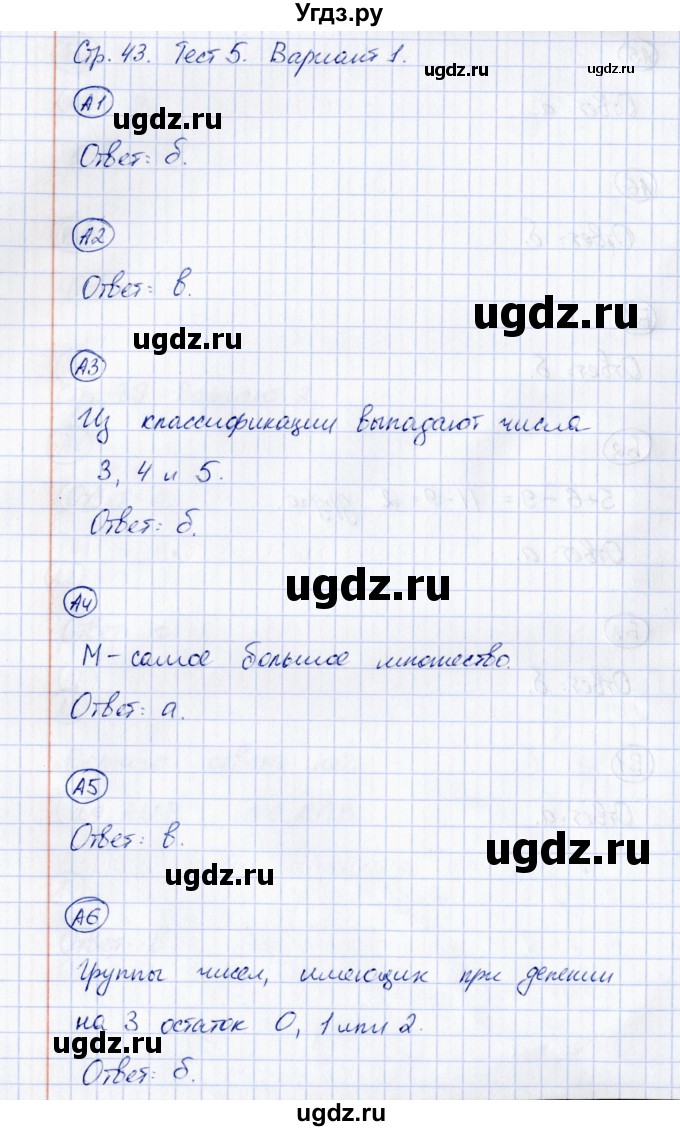 Угдз.ру
Стр. 43. Тест 5. Вариант 1.
ugdz.ru
ugdz.ru
А1
ugdz.ru
Ответ: б.
А2
Ответ: в.
ugdz.ru
ugdz.ru
А3
Из классификации выпадают числа
3, 4 и 5.
Ответ: б.
ugdz.ru
А4
М – самое большое множество.
Ответ: а.
А5
Ответ: в.
ugdz.ru
ugdz.ru
А6
Группы чисел, имеющих при делении
на 3 остаток 0, 1 или 2.
ugdz.ru
Ответ: б.
ugdz.ru